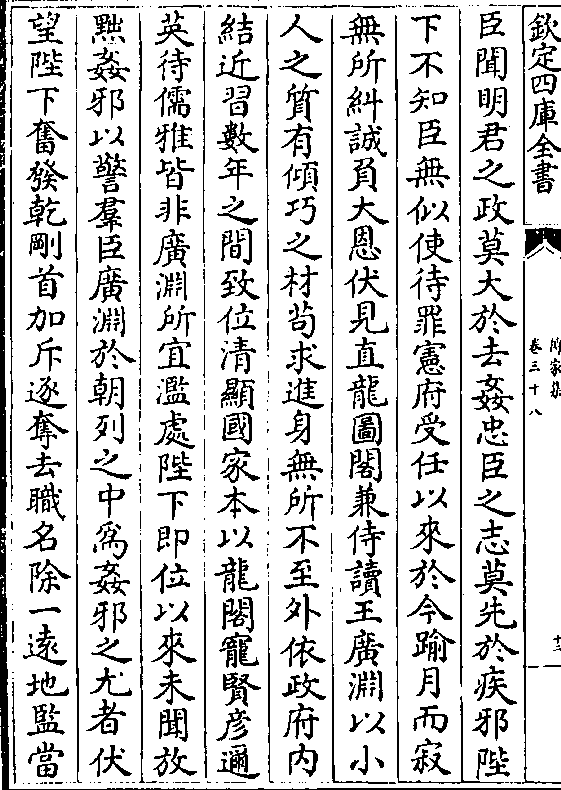 欽定四庫全書
傳家集
卷三十八
十三
臣聞明君之政莫大於去姦忠臣之志莫先於疾邪陛
下不知臣無似使待罪憲府受任以來於今踰月而寂
無所糾誠負大恩伏見直龍圖閣兼侍讀王廣淵以小
人之質有傾巧之材苟求進身無所不至外依政府内
結近習數年之間致位清顯國家本以龍閣寵賢彦邇
英待儒雅皆非廣淵所宜濫處陛下即位以來未聞放
黜姦邪以警羣臣廣淵於朝列之中為姦邪之尤者伏
望陛下奮發乾剛首加斥逐奪去職名除一逺地監當